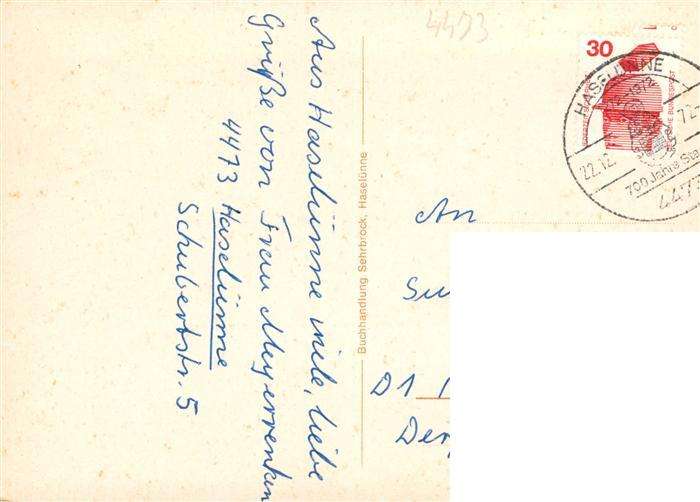 4473
30
HASELÜNNE
1272-1972
22.12.
72-
700 Jahre Sta
447
Aus Haselünne viele, liebe
Grüße von Frau Meyerrenken
4473 Haselünne
Schubertstr. 5
Buchhandlung Sehrbrock, Haselünne
An
Su
D1
Der